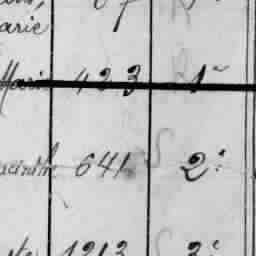 arie
Marie 423 1º
acinthe 641 2º
1213 3º